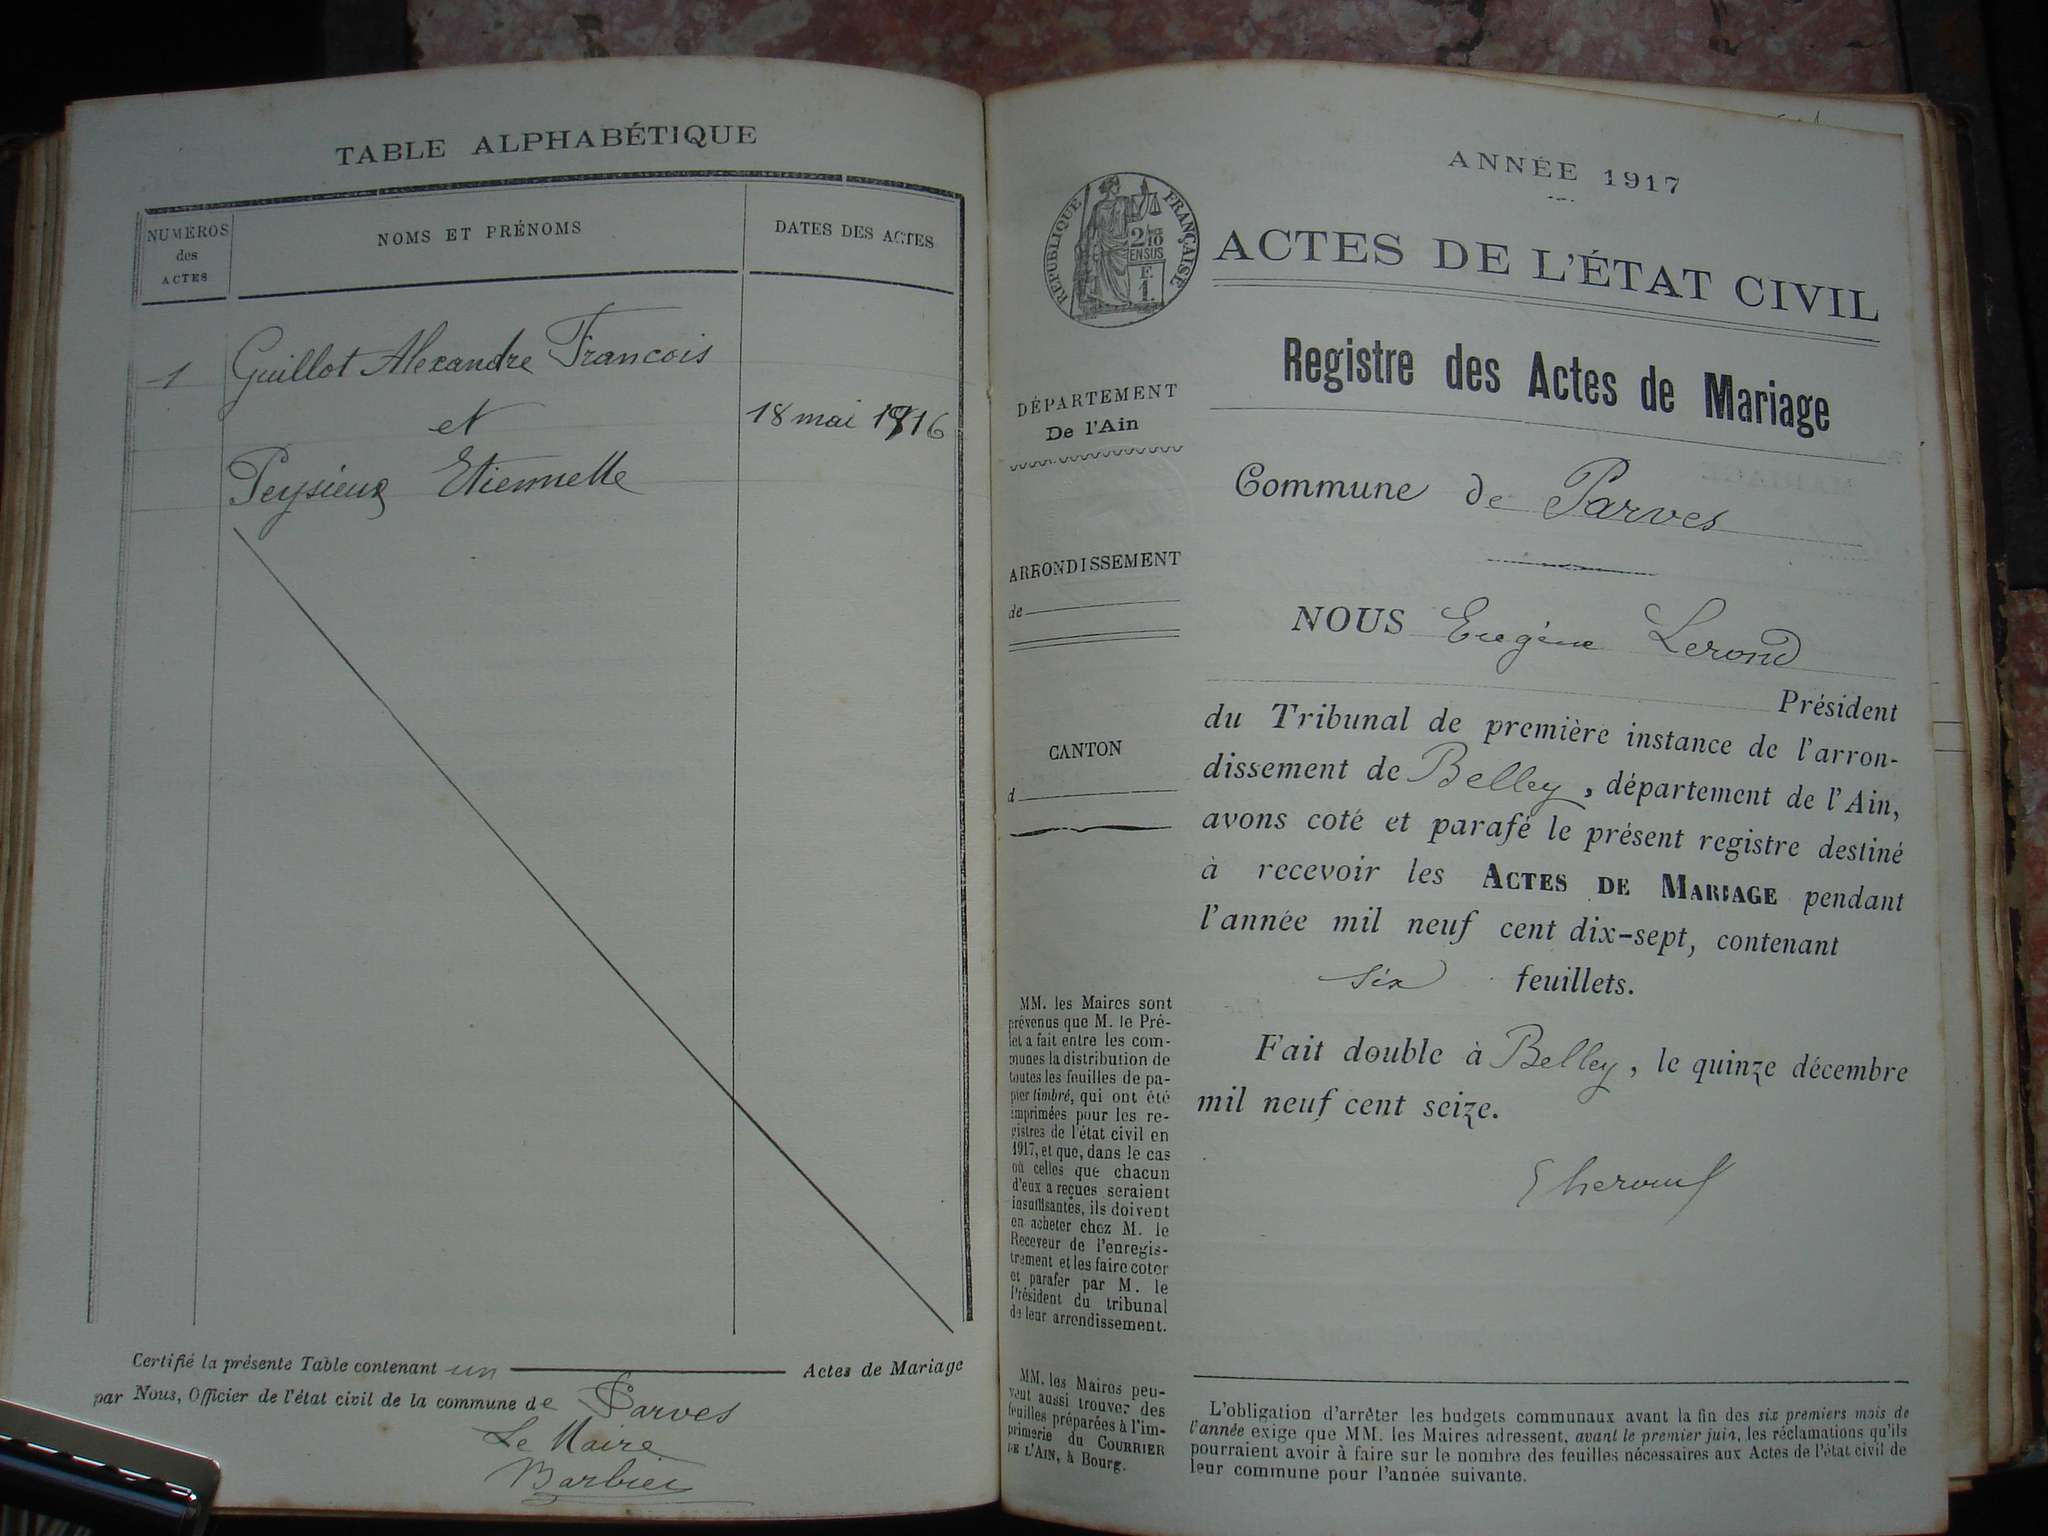 TABLE ALPHABÉTIQUE
NUMÉROS
des
ACTES
NOMS ET PRÉNOMS
DATES DES ACTES
1
Guillot Alexandre Francois
et
18 mai 1916
Peysieux Etiennette
Certifié la présente Table contenant un Actes de Mariage
par Nous, Officier de l'état civil de la commune de Parves
Le Maire
Barbier
ANNÉE 1917
RÉPUBLIQUE FRANÇAISE
2/10
EN SUS
F.
1.
ACTES DE L'ÉTAT CIVIL
Registre des Actes de Mariage
DÉPARTEMENT
De l'Ain
Commune de Parves
ARRONDISSEMENT
de
NOUS Eugène Lerond
Président
du Tribunal de première instance de l'arron-
dissement de Belley, département de l'Ain,
avons coté et parafé le présent registre destiné
à recevoir les ACTES DE MARIAGE pendant
l'année mil neuf cent dix-sept, contenant
six feuillets.
Fait double à Belley, le quinze décembre
mil neuf cent seize.
CANTON
d
MM. les Maires sont
prévenus que M. le Pré-
fet a fait entre les com-
munes la distribution de
toutes les feuilles de pa-
pier timbré, qui ont été
imprimées pour les re-
gistres de l'état civil en
1917, et que, dans le cas
où celles que chacun
d'eux a reçues seraient
insuffisantes, ils doivent
en acheter chez M. le
Receveur de l'enregis-
trement et les faire coter
et parafer par M. le
Président du tribunal
de leur arrondissement.
MM. les Maires peu-
vent aussi trouver des
feuilles préparées à l'im-
primerie du COURRIER
DE L'AIN, à Bourg.
L'obligation d'arrêter les budgets communaux avant la fin des six premiers mois de
l'année exige que MM. les Maires adressent, avant le premier juin, les réclamations qu'ils
pourraient avoir à faire sur le nombre des feuilles nécessaires aux Actes de l'état civil de
leur commune pour l'année suivante.